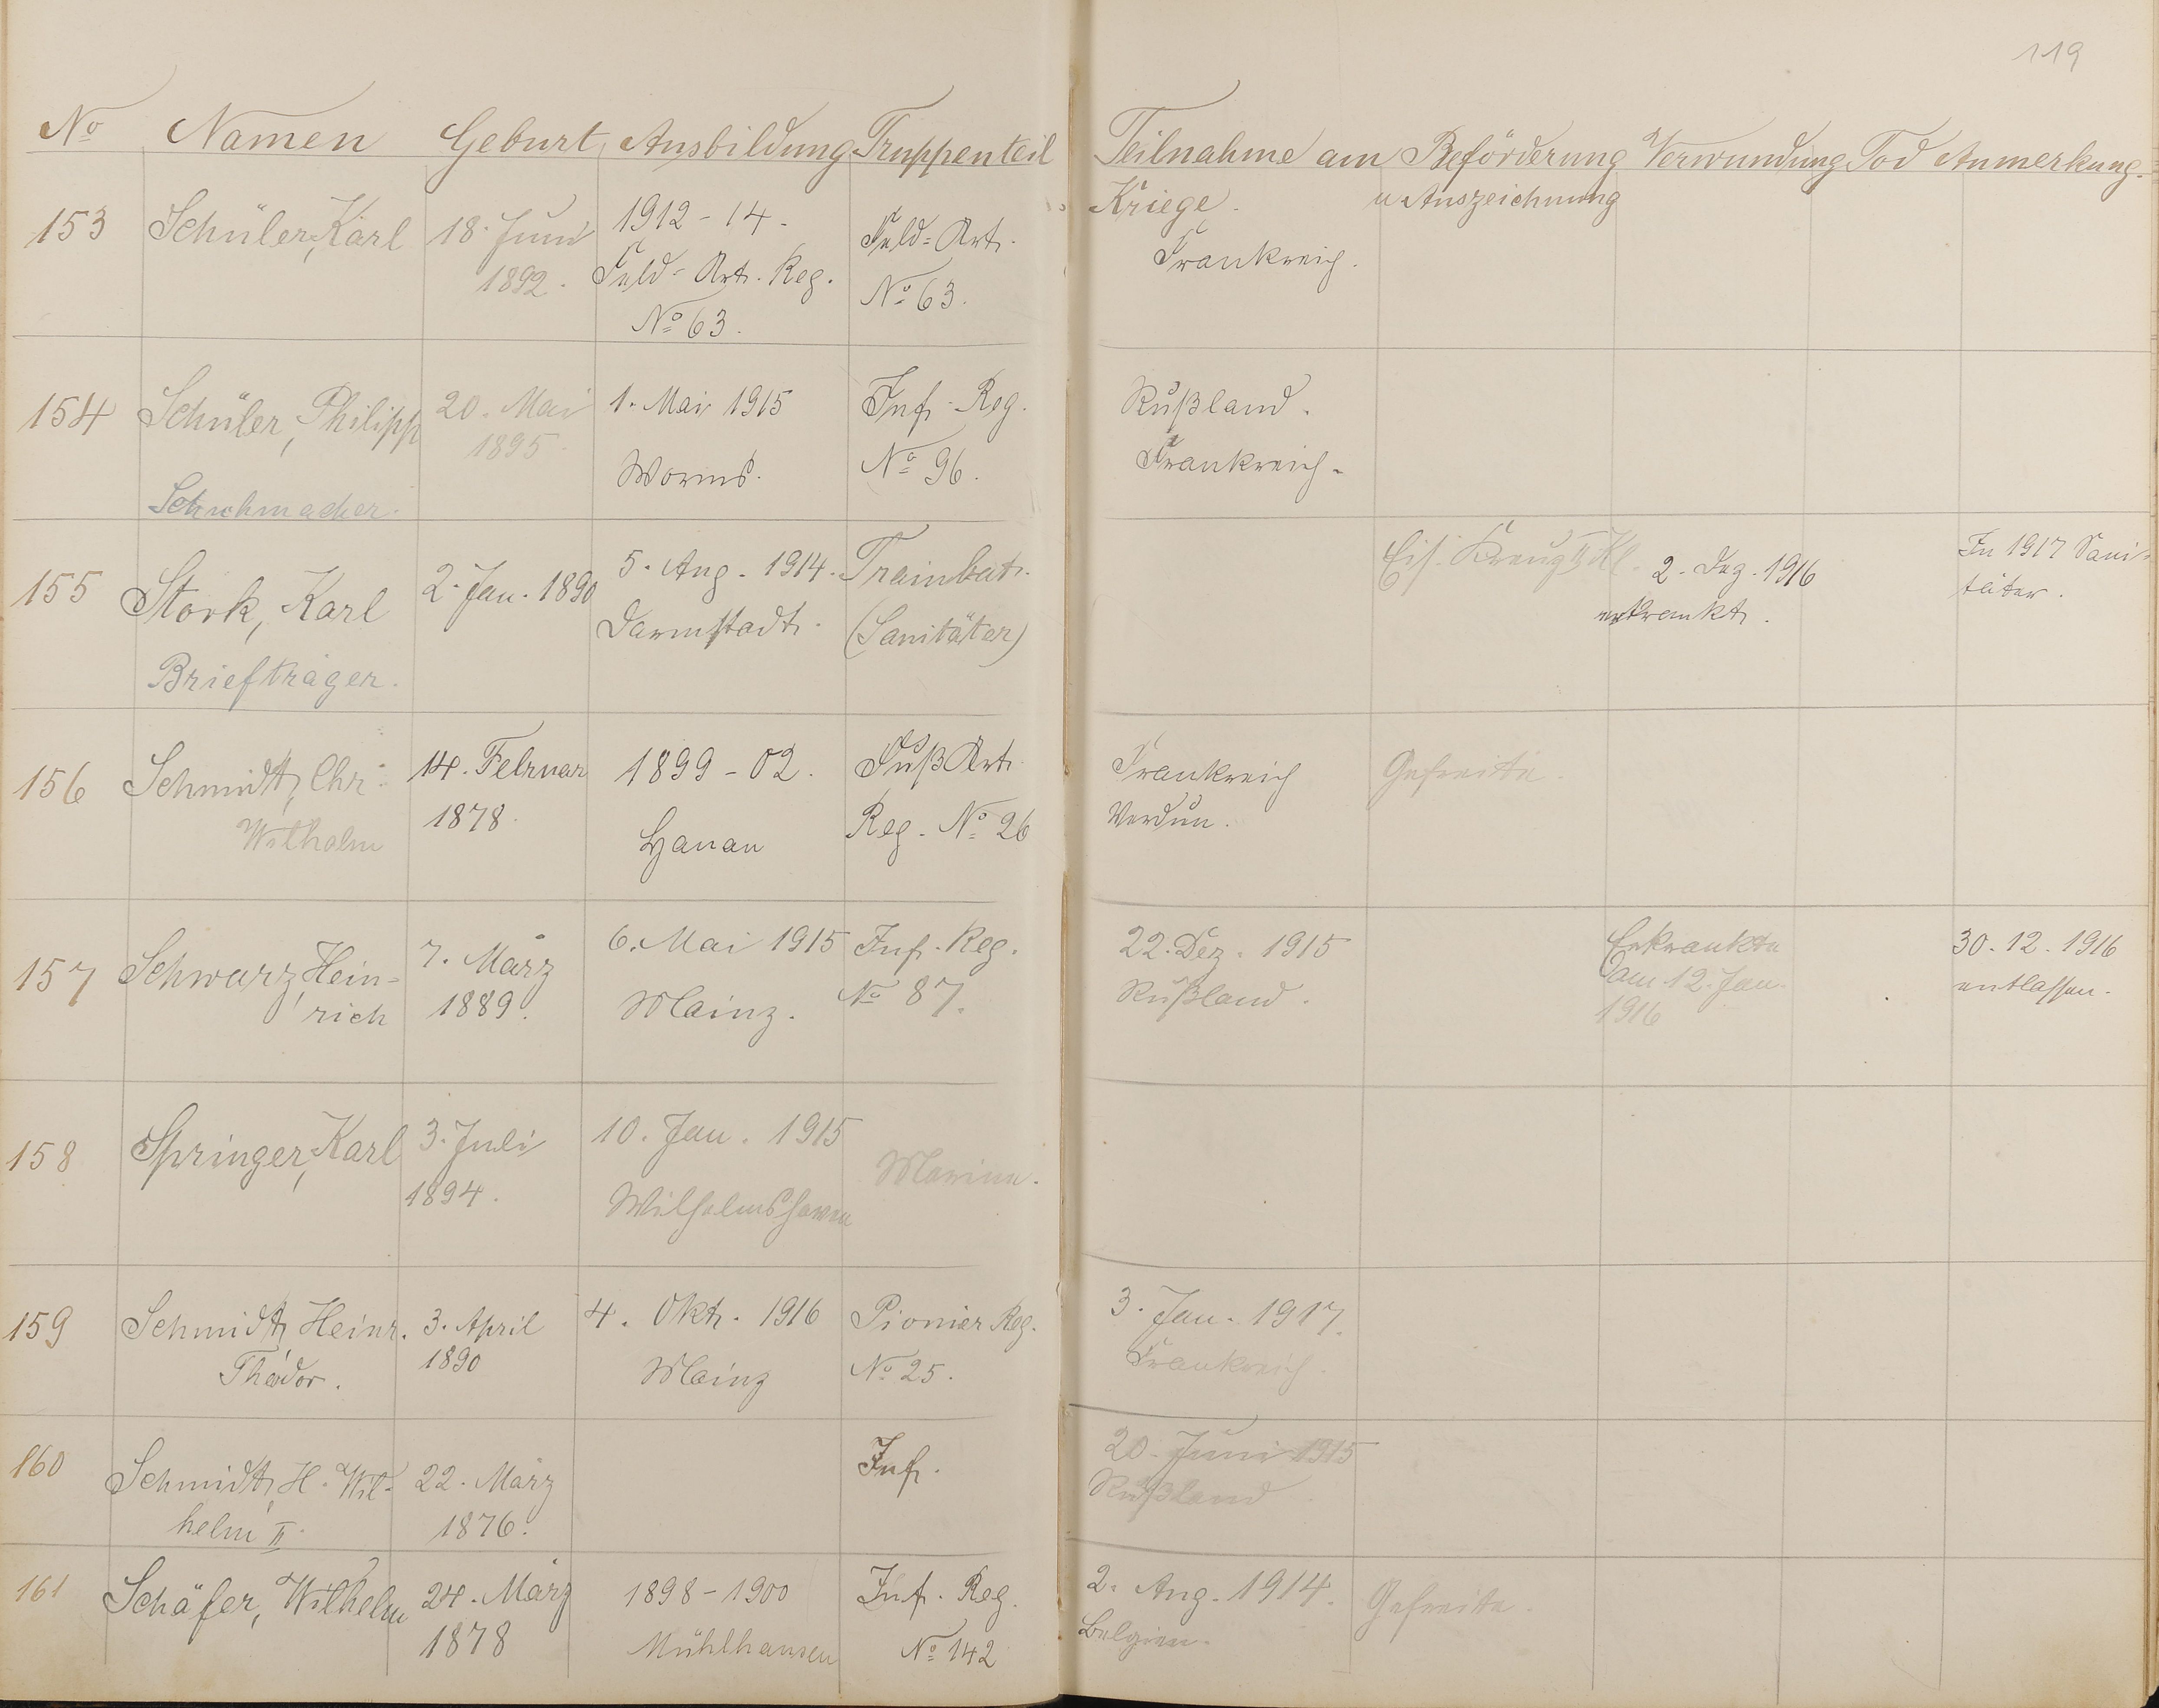 119
No Namen Geburt Ausbildung Truppenteil Teilnahme am Beförderung Verwundung Tod Anmerkung.
Kriege. u Auszeichnung
153 Schüler, Karl 18. Juni 1912 - 14. Feld-Art.
1892. Feld-Art. Reg. No 63. Frankreich.
No 63.
154 Schüler, Philipp 20. Mai 1. Mai 1915 Inf. Reg. Rußland.
1895. Worms. No 96. Frankreich.
Schuhmacher.
155 Stork, Karl 2. Jan. 1890 5. Aug. 1914. Trainbat. Eis. Kreuz II Kl. 2. Dez. 1916 In 1917 Sani-
Darmstadt. (Sanitäter) erkrankt. täter.
Briefträger.
156 Schmidt, Chr. 14. Februar 1899 - 02. Fuß Art. Frankreich Gefreite.
Wilhelm 1878. Hanau Reg. No 26 Verdun.
157 Schwarz, Hein- 7. März 6. Mai 1915 Inf. Reg. 22. Dez. 1915 Erkrankte 30. 12. 1916
rich 1889. Mainz. No 87. Rußland. am 12. Jan. entlassen.
1916
158 Springer, Karl 3. Juli 10. Jan. 1915 Marine.
1894. Wilhelmshaven
159 Schmidt, Heinr. 3. April 4. Okt. 1916 Pionier Reg. 3. Jan. 1917.
Theodor. 1890 Mainz No 25. Frankreich.
160 Schmidt, H. Wil- 22. März Inf. 20. Juni 1915
helm II. 1876. Rußland
161 Schäfer, Wilhelm 24. März 1898 - 1900 Inf. Reg. 2. Aug. 1914. Gefreite.
1878 Mühlhausen No 142 Belgien.